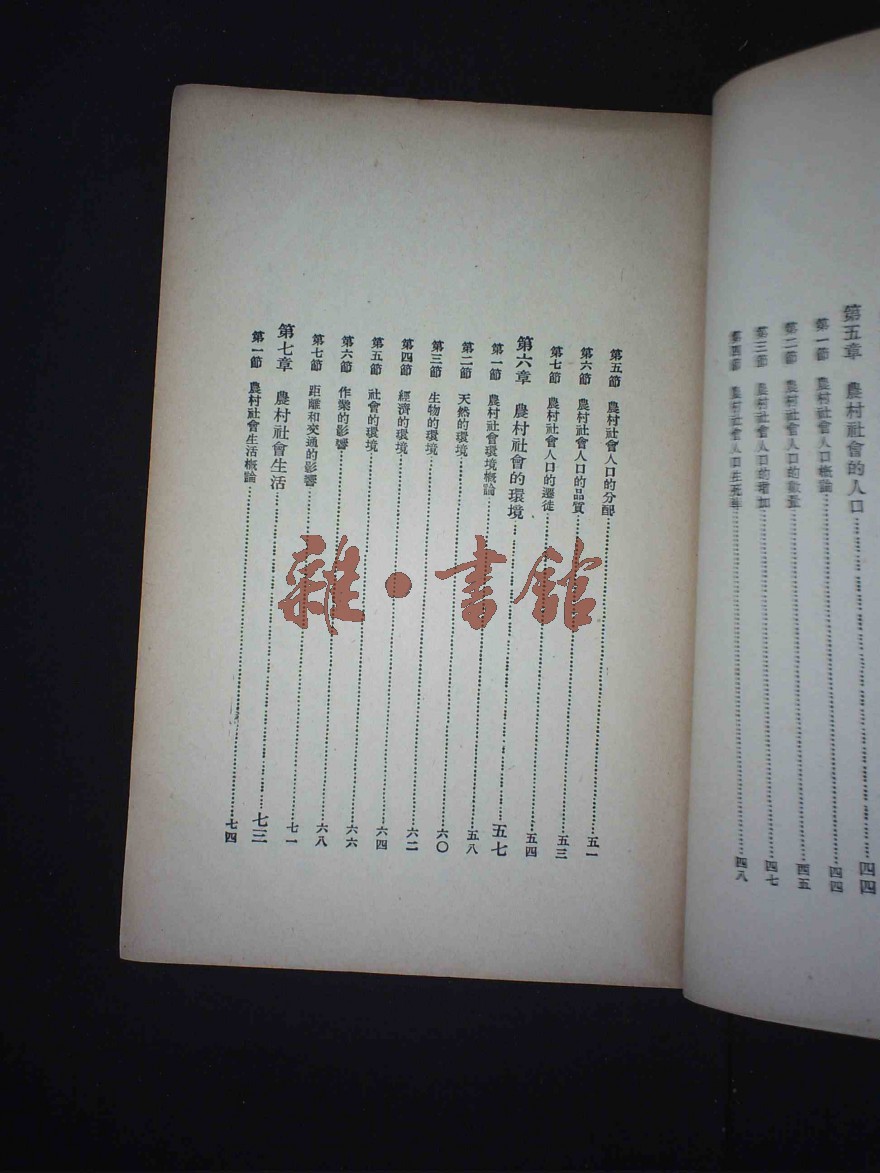 第五章 農村社會的人口……四四
第一節 農村社會人口概論……四四
第二節 農村社會人口的數量……四五
第三節 農村社會人口的增加……四七
第四節 農村社會人口生死率……四八
第五節 農村社會人口的分配……五一
第六節 農村社會人口的品質……五三
第七節 農村社會人口的遷徒……五四
第六章 農村社會的環境……五七
第一節 農村社會環境概論……五八
第二節 天然的環境……六〇
第三節 生物的環境……六二
第四節 經濟的環境……六四
第五節 社會的環境……六六
第六節 作業的影響……六八
第七節 距離和交通的影響……七一
第七章 農村社會生活……七三
第一節 農村社會生活概論……七四
雜·書館